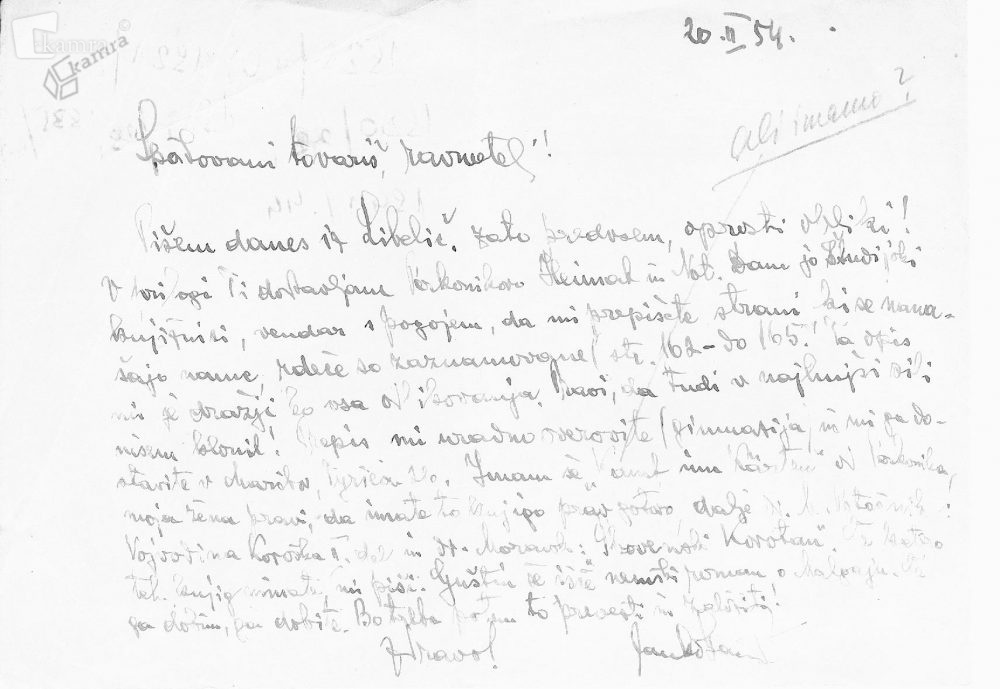 kamra
kamra
20.II 54.
Ali imamo?
Spoštovani tovariš, ravnatelj!!
Pišem danes iz Libelič. Zato predvsem, oprosti obliki!
V prilogi Ti dostavljam Perkonikovo Heimat in Not. Dam jo študijski
knjižnici, vendar s pogojem, da mi prepišete strani ki se nana-
šajo name, rdeče so zaznamovane/ str. 162 – do 165! Ta opis
mi je dražji ko vsa odlikovanja. Pravi, da tudi v najhujši sili
nisem klonil! Prepis mi uradno overovite /gimnazija/ in mi ga do-
stavite v Maribor, Imam še „Kampf um Kärnten"
moja žena pravi, da imate to knjigo prav gotovo, dalje dr.
Vojvodina Koroška I. del in dr. Moravski: Slovenski Korotan. Če katero
teh knjig nimate, mi piši. Guštin še išče nemški roman o Malgaju. Če
ga dobim, ga dobite. Bo treba potem to prevesti in založiti!
Zdravo!